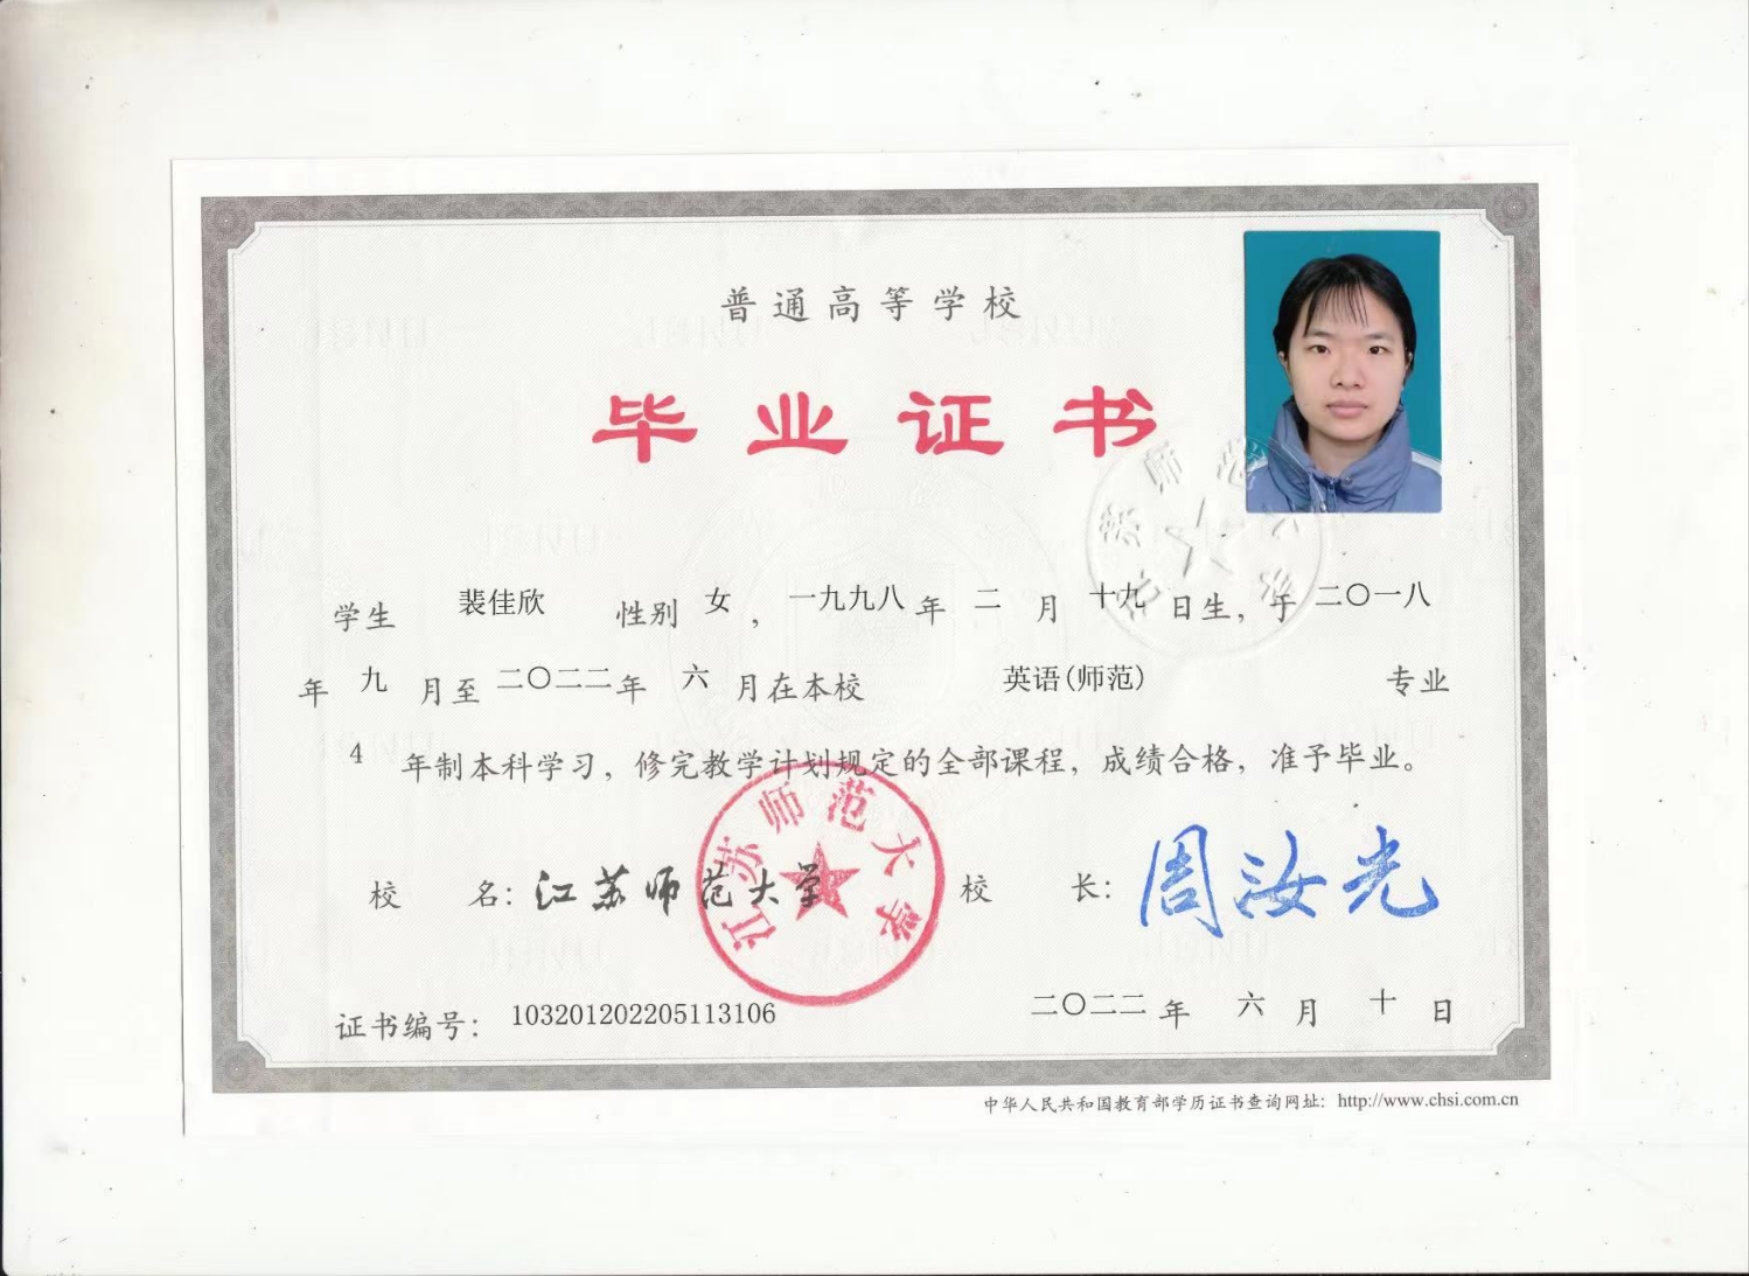 普通高等学校
毕业证书
学生 裴佳欣 性别 女，一九九八年 二 月 十九 日生，于 二〇一八
年 九 月至 二〇二二年 六 月在本校 英语(师范) 专业
4 年制本科学习，修完教学计划规定的全部课程，成绩合格，准予毕业。
校 名：江苏师范大学 校 长：周汝光
江苏师范大学
证书编号：103201202205113106 二〇二二年 六 月 十 日
中华人民共和国教育部学历证书查询网址：http://www.chsi.com.cn